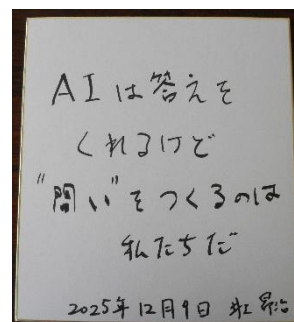 AIは答えを
くれるけど
"問い"をつくるのは
私たちだ
2025年12月9日